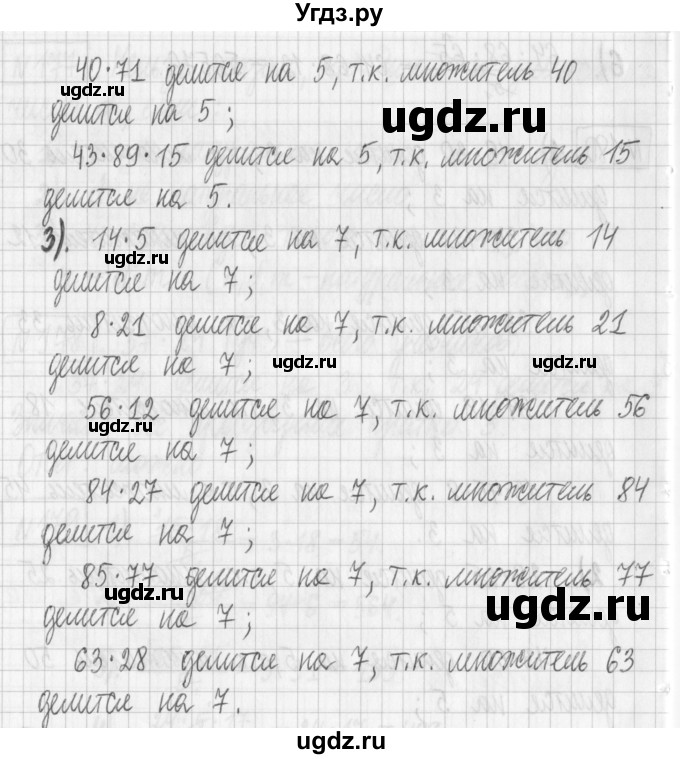 Угдз.ру
40·71 делится на 5, т.к. множитель 40
делится на 5;
ugdz.ru
43·89·15 делится на 5, т.к. множитель 15
делится на 5.
3). 14·5 делится на 7, т.к. множитель 14
ugdz.ru
делится на 7;
8·21 делится на 7, т.к. множитель 21
делится на 7;
ugdz.ru ugdz.ru
56·12 делится на 7, т.к. множитель 56
ugdz.ru
делится на 7;
84·27 делится на 7, т.к. множитель 84
делится на 7;
85·77 делится на 7, т.к. множитель 77
ugdz.ru ugdz.ru
делится на 7;
63·28 делится на 7, т.к. множитель 63
делится на 7.
ugdz.ru